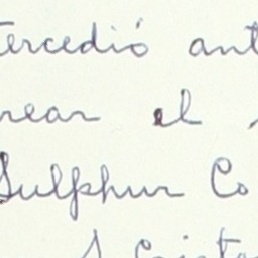 tercedió ant
near el
Sulphur Co